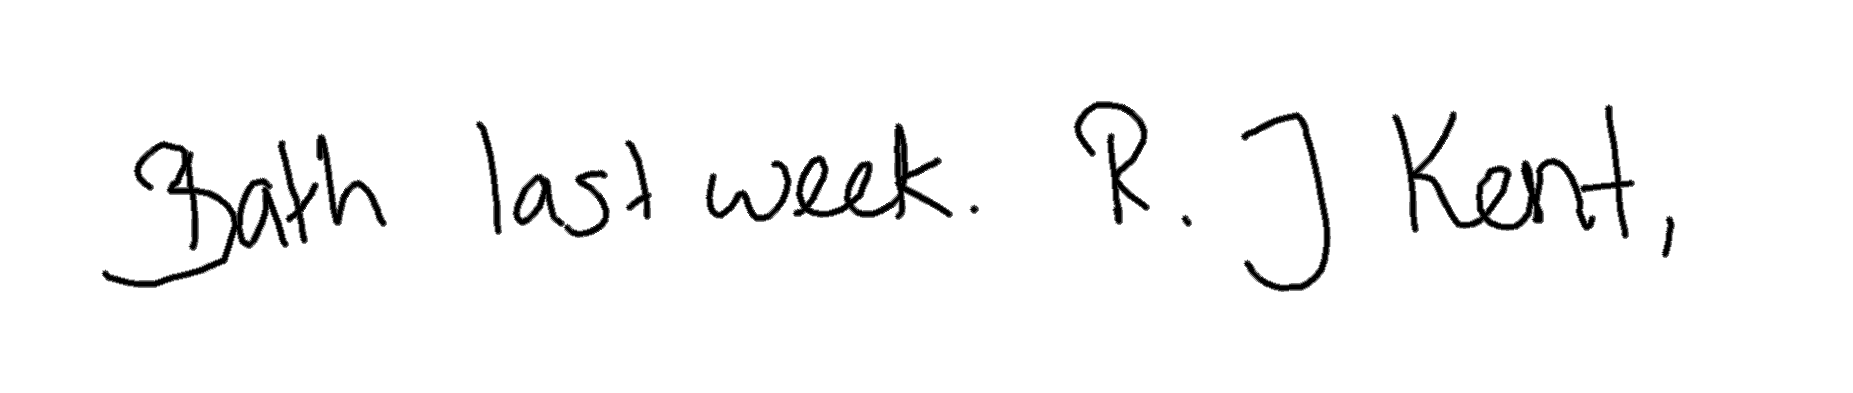 Bath last week. R. J Kent,